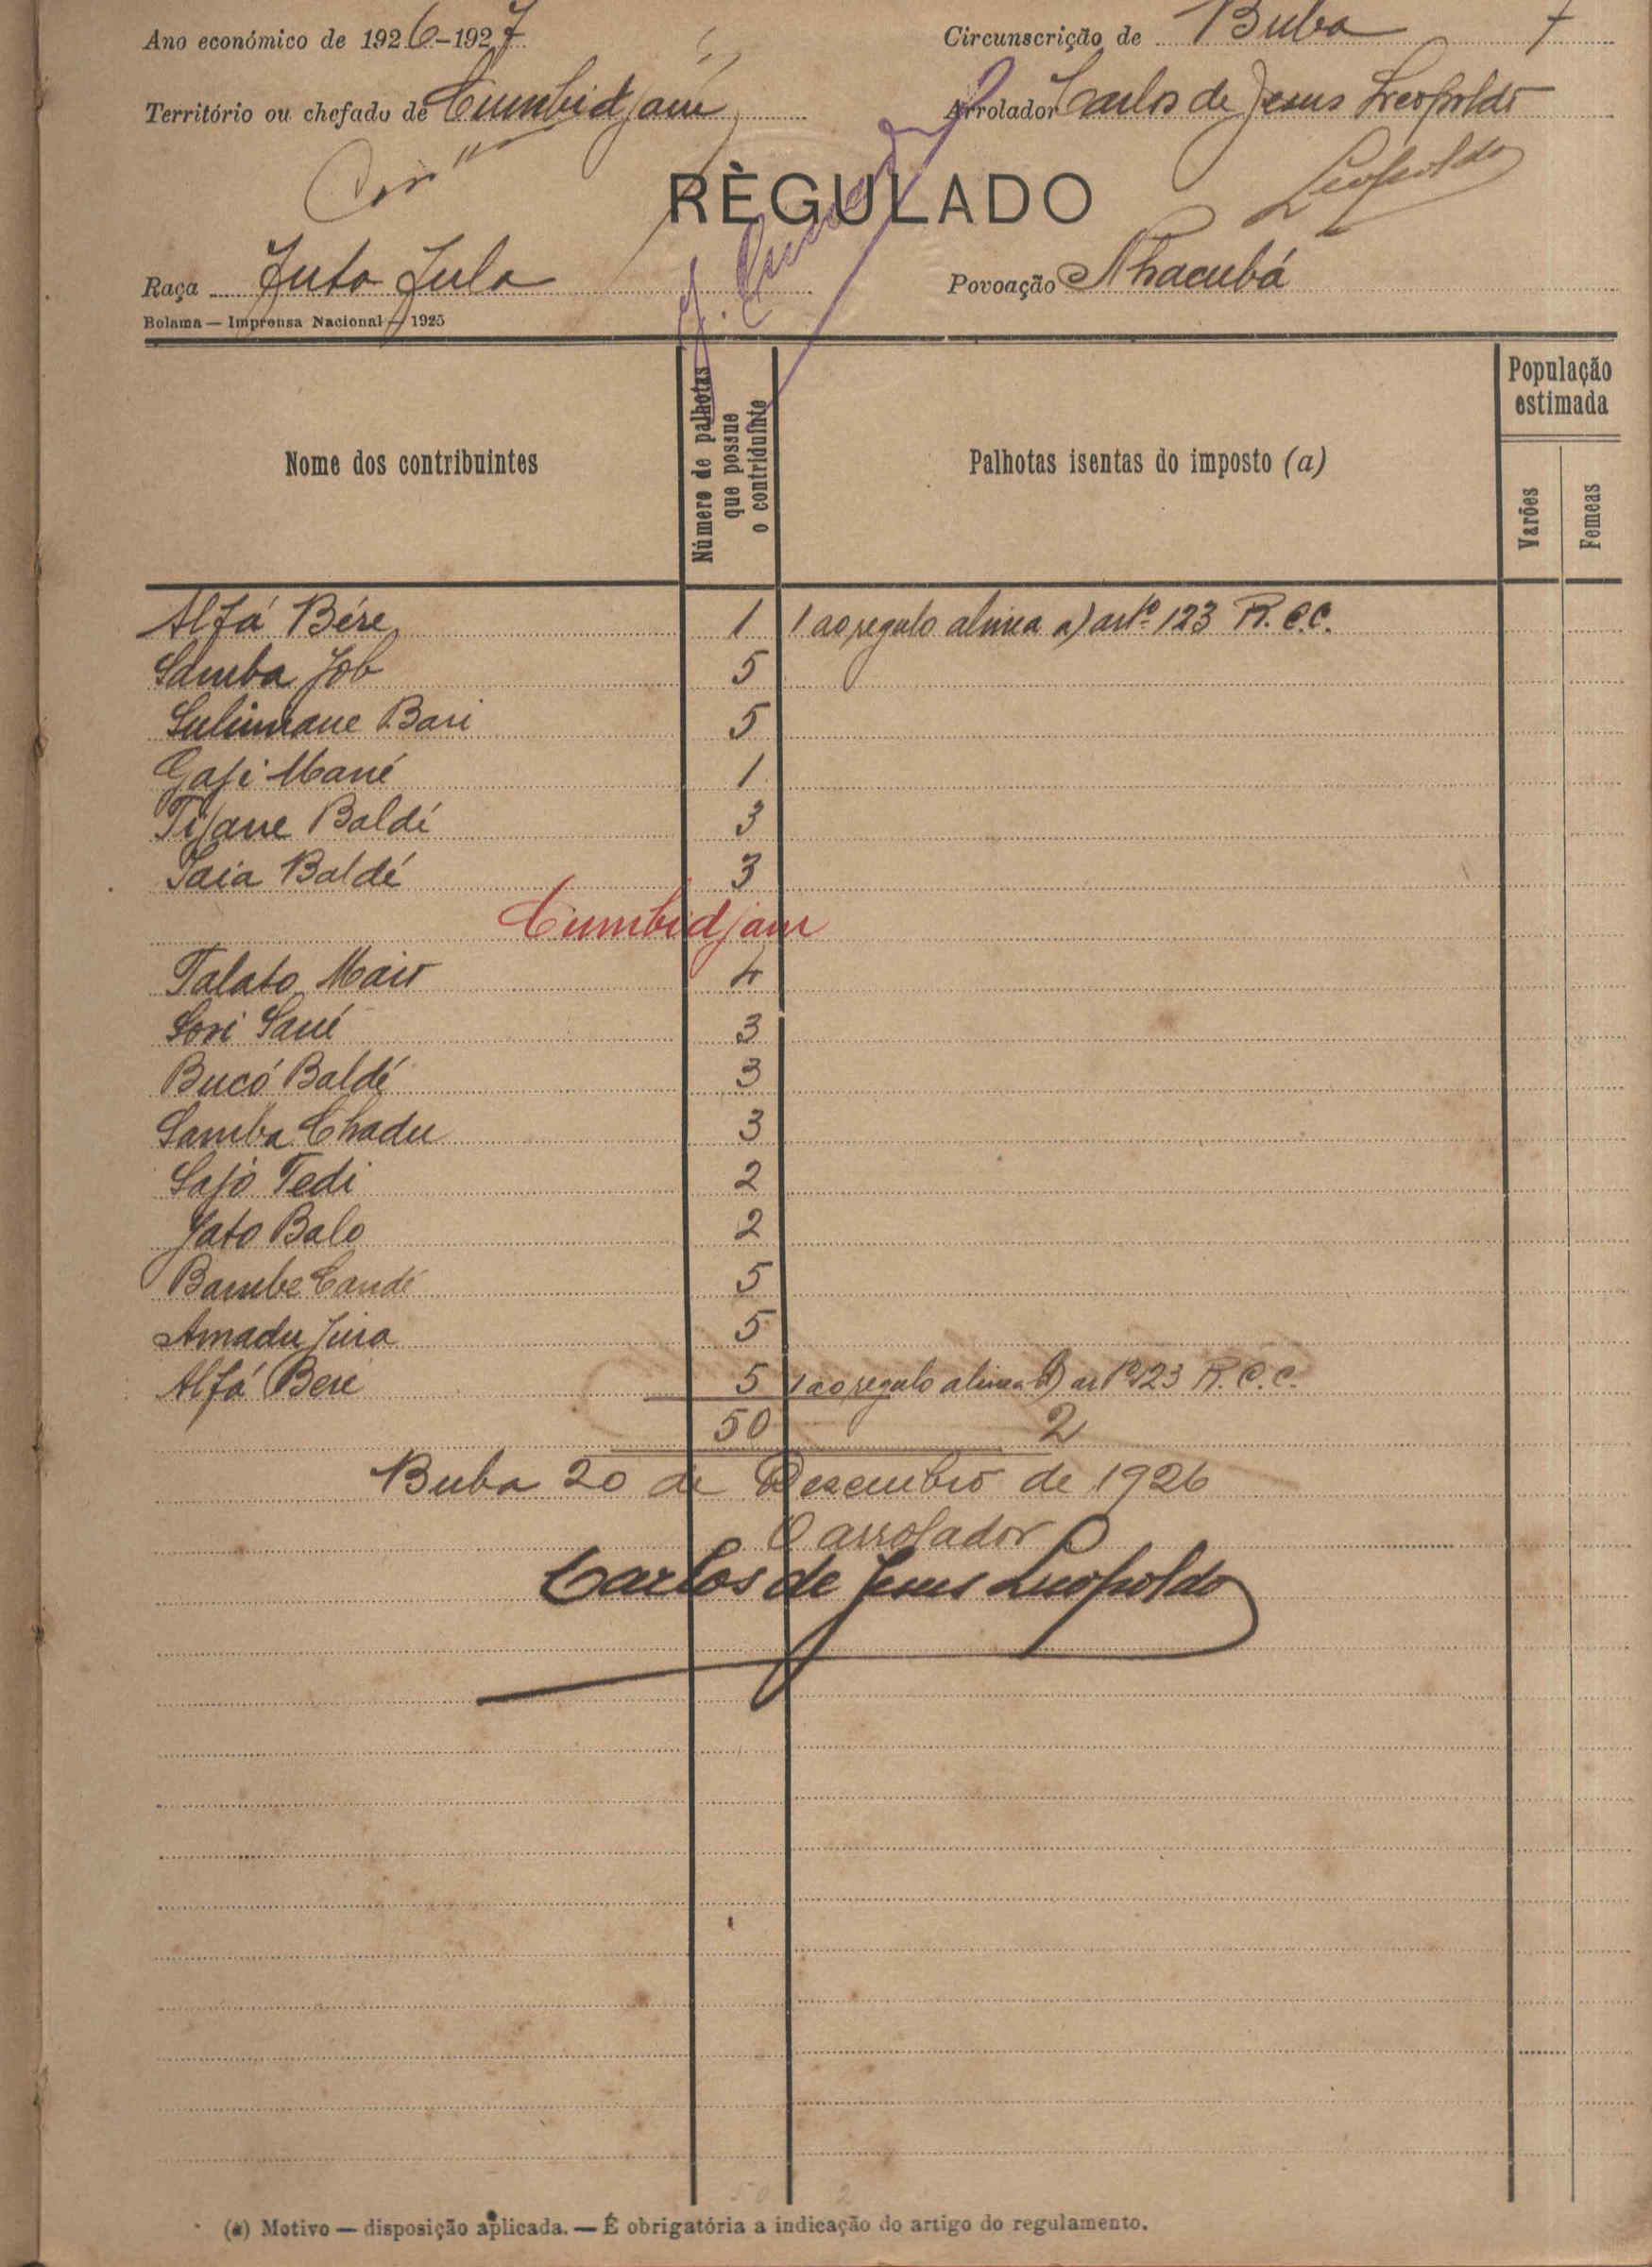 Ano económico de 1926-1927 Circunscrição de Buba 7
Território ou chefado de Cumbidjam Arrolador Carlos de Jesus Leopoldo
Leopoldo
RÈGULADO
Raça Futa Fula Povoação Nhacubá
Bolama — Imprensa Nacional — 1925
Nome dos contribuintes
Número de palhotas que possue o contriduinte
Palhotas isentas do imposto (a)
População estimada
Varões
Femeas
Alfá Bére 1 1 ao regulo alinea a) artº 123 R.C.C.
Samba Job 5
Sulimane Bari 5
Gafi Mané 1
Tijane Baldé 3
Saia Baldé 3
Cumbidjam
Talato Maio 4
Sori Sané 3
Bucó Baldé 3
Samba Chadu 3
Sajo Tedi 2
Jato Balo 2
Bambe Candé 5
Amadu Jura 5
Alfá Beré 5 1 ao regulo alinea a) artº 123 R.C.C.
50 2
Buba 20 de Dezembro de 1926
O arrolador
Carlos de Jesus Leopoldo
(a) Motivo — disposição aplicada. — É obrigatória a indicação do artigo do regulamento.